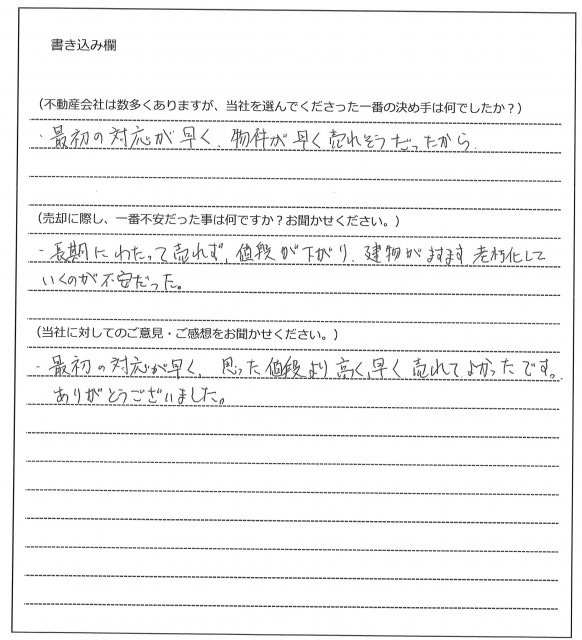 書き込み欄
（不動産会社は数多くありますが、当社を選んでくださった一番の決め手は何でしたか？）
・最初の対応が早く、物件が早く売れそうだったから
（売却に際し、一番不安だった事は何ですか？お聞かせください。）
・長期にわたって売れず、値段が下がり、建物がますます老朽化して
いくのが不安だった。
（当社に対してのご意見・ご感想をお聞かせください。）
・最初の対応が早く、思った値段より高く、早く売れてよかったです。
ありがとうございました。